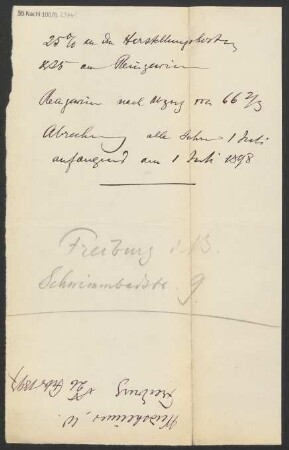 25 % an den Herstellungskosten
& 25 am Reingewinn
Reingewinn nach Abzug von 66 2/3
Abrechnung alle Jahre 1 Juli
anfangend am 1 Juli 1898
Freiburg i. B.
Schwimmbadstr. 9.
Weisheimer, W.
Freiburg 26 Febr 1897